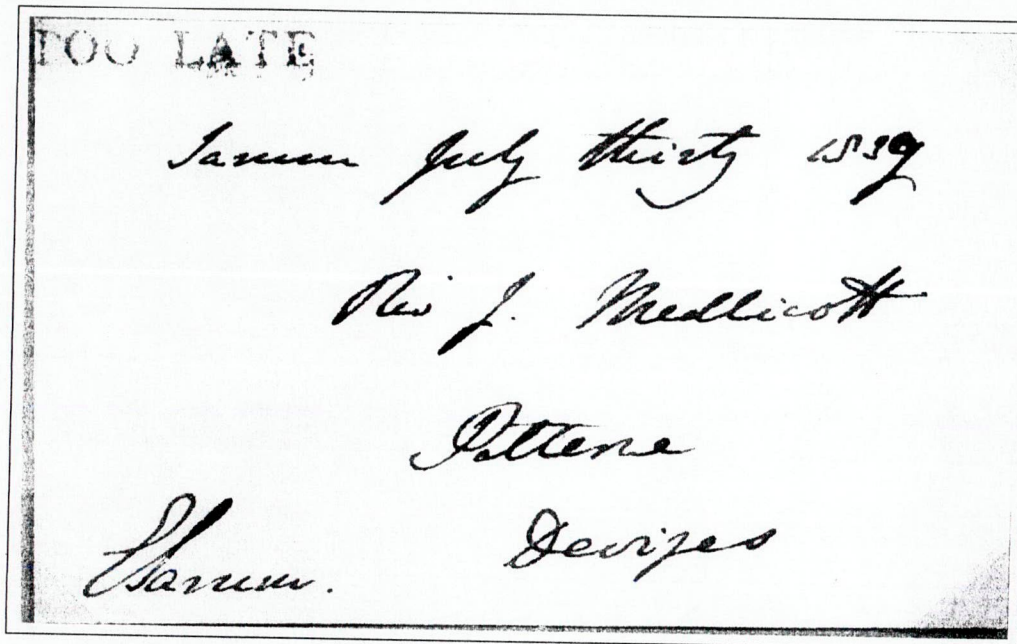 TOO LATE
Sarum July thirty 1839
Rev J. Medlicott
Potterne
Devizes
E Sarum.